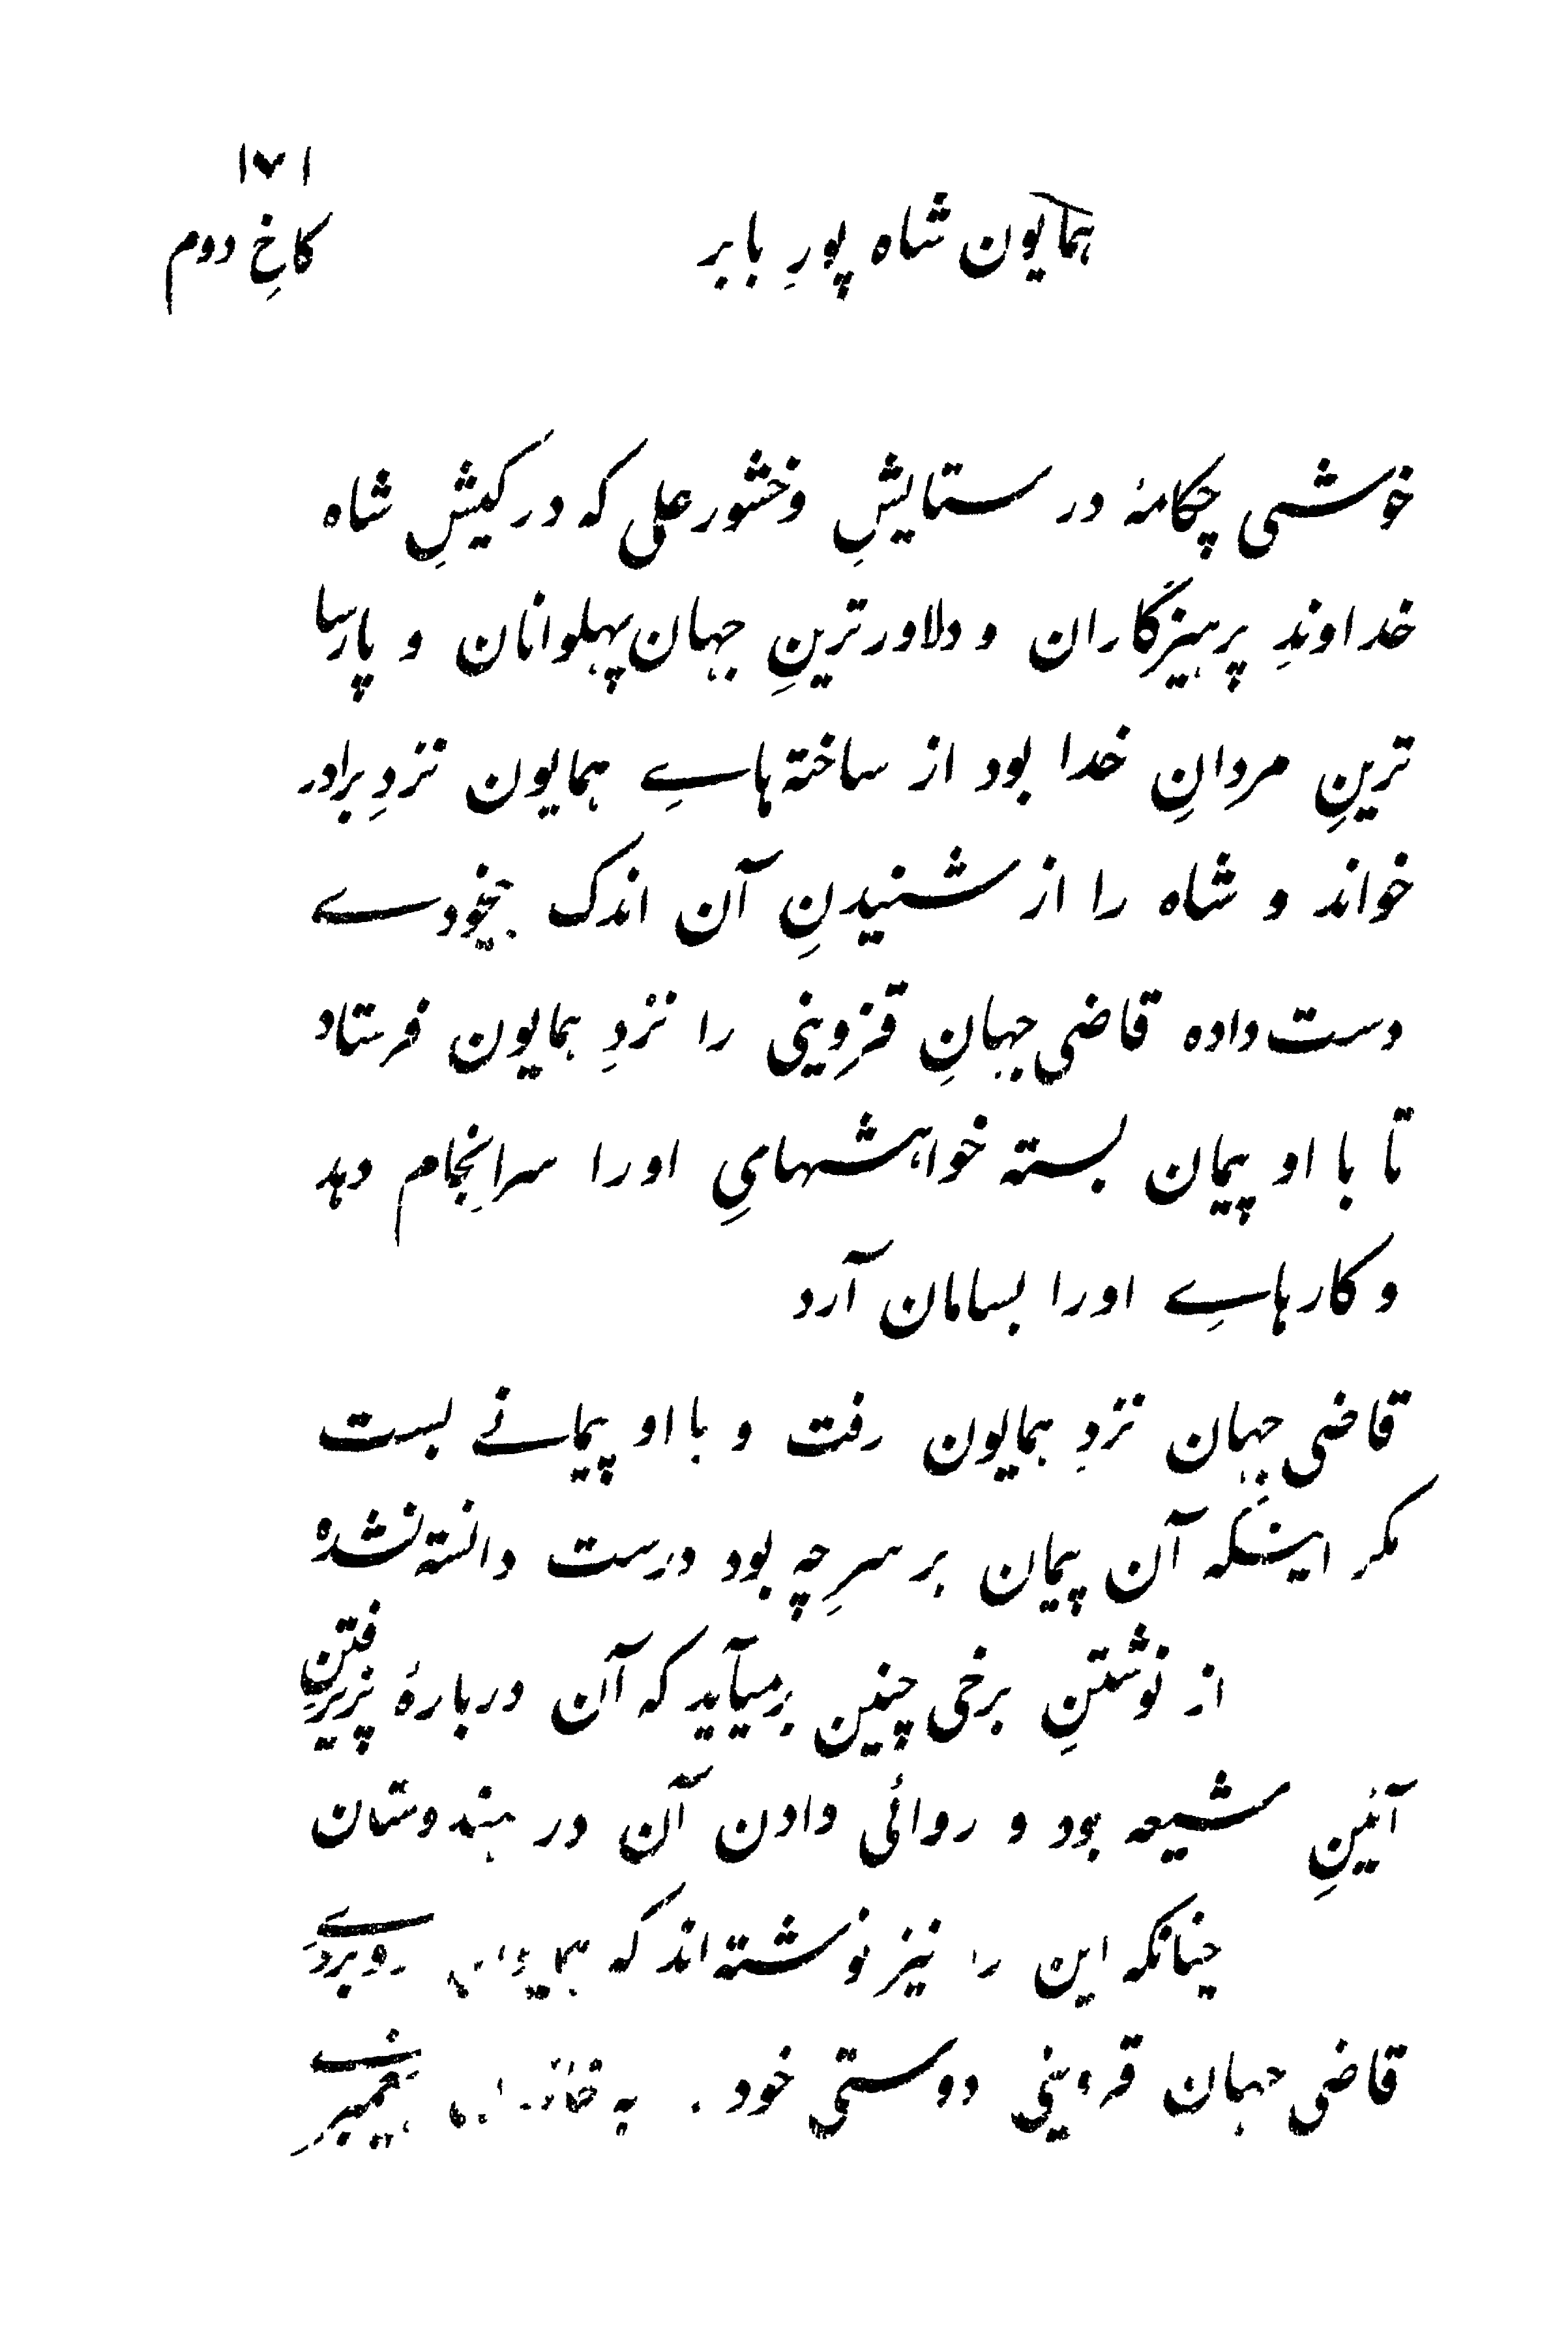 ۱۷۱
همایون شاه پورِ بابر
کاخِ دوم
خوشی چکامهٔ در ستایشِ وخشور علی که در کیشِ شاه
خداوندِ پرهیزگاران و دلاورترینِ جهان پهلوانان و پارسا
ترینِ مردانِ خدا بود از ساخته‌هاےِ همایون نزدِ برادر
خواند و شاه را از شنیدنِ آن اندک بیخودے
دست داده قاضی جهانِ قزوینی را نزدِ همایون فرستاد
تا با او پیمان بسته خواهشهایِ اورا سرانجام دهد
و کارهاےِ اورا بسامان آرد
قاضی جهان نزدِ همایون رفت و با او پیمانے بست
مگر اینکه آن پیمان بر سرِ چه بود درست دانسته نشده
از نوشتنِ برخی چنین برمیآید که آن دربارهٔ پزیرفتنِ
آئینِ شیعه بود و روائی دادن آن در هندوستان
چنانکه این را نیز نوشته‌اند که همایون روبروےِ
قاضی جهان قزوینی دوستی خود به خاندان پیغمبرے